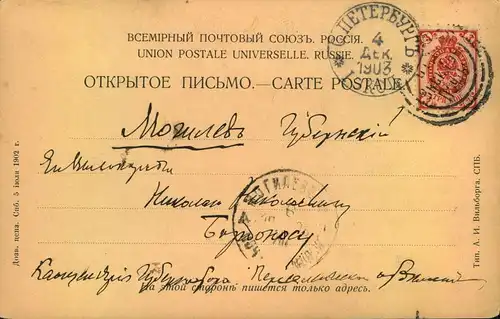 ВСЕМІРНЫЙ ПОЧТОВЫЙ СОЮЗЪ. РОССІЯ.
UNION POSTALE UNIVERSELLE. RUSSIE.
ОТКРЫТОЕ ПИСЬМО.—CARTE POSTALE.
С.ПЕТЕРБУРГЪ
4
ДЕК.
1903
Могилевъ Губернскій
Николаю Николаевичу
Канцелярія Губернатора.
На этой сторонѣ пишется только адресъ.
Дозв. ценз. Спб. 5 іюля 1902 г.
Тип. А. И. Вильборгъ. СПБ.